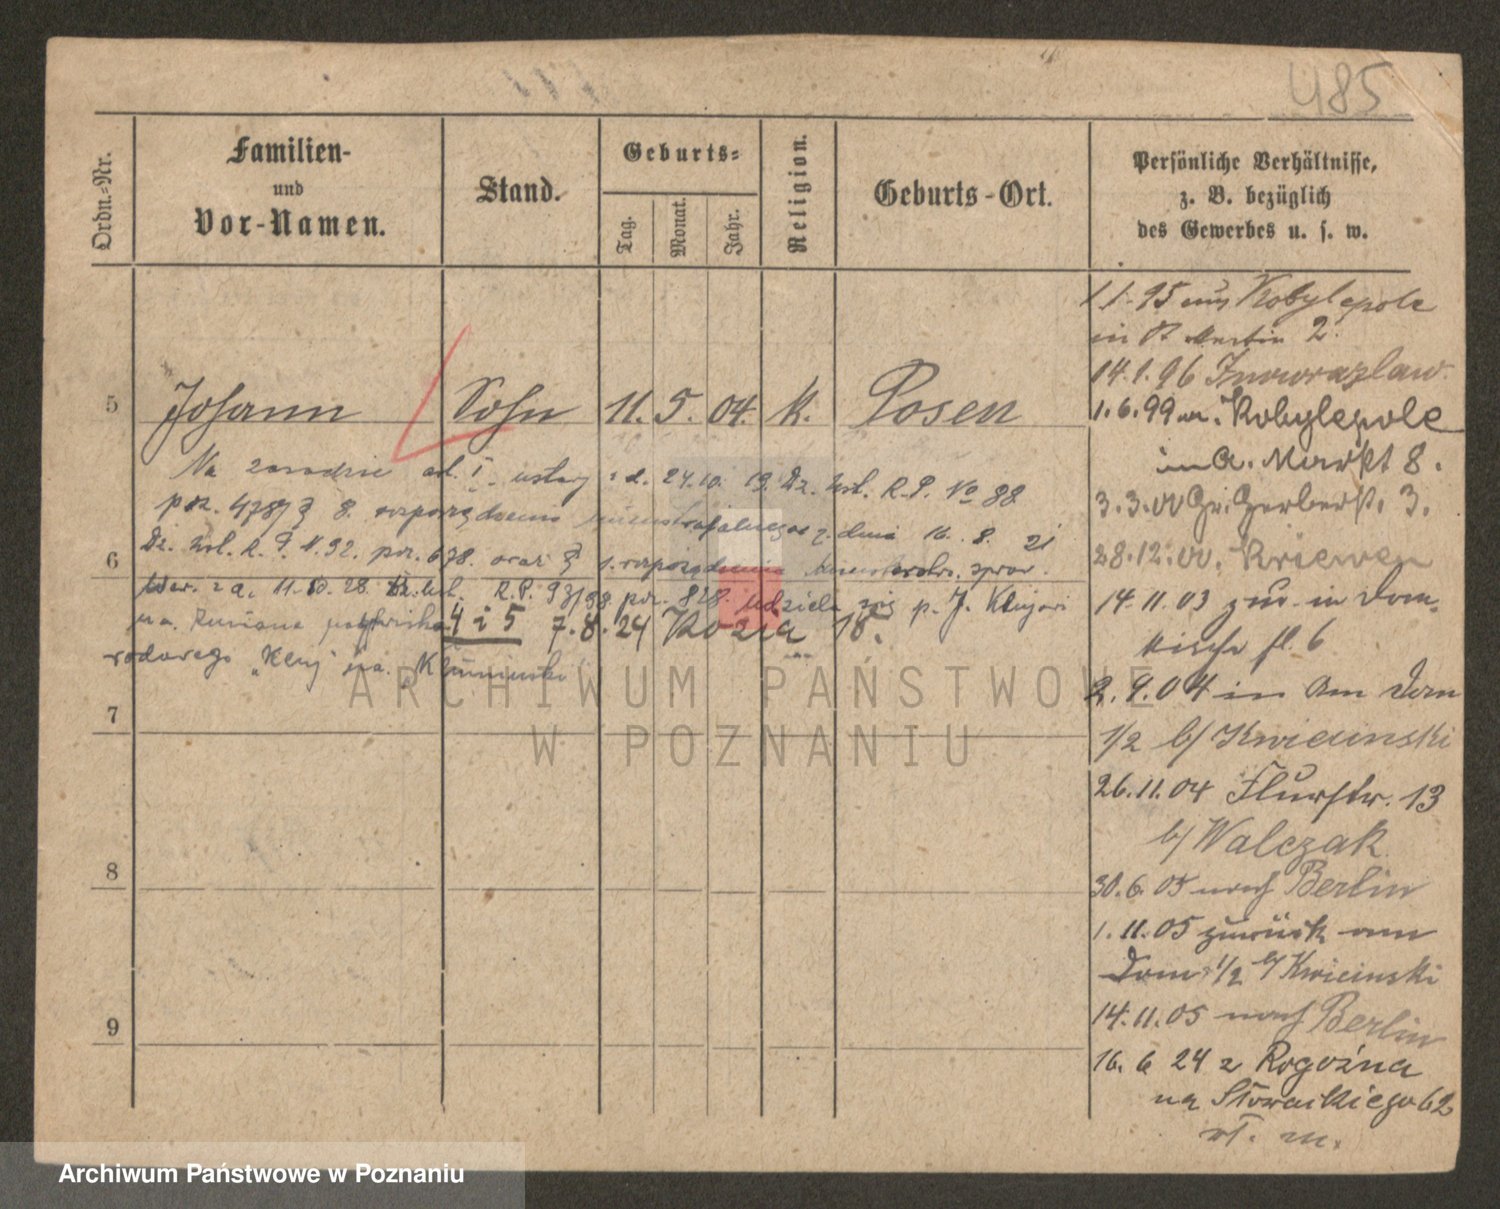 485
Ordn.-Nr.
Familien-
und
Vor-Namen.
Stand.
Geburts-
Tag.
Monat.
Jahr.
Religion.
Geburts-Ort.
Persönliche Verhältnisse,
z. B. bezüglich
des Gewerbes u. s. w.
5 Johann Sohn 11. 5. 04. k. Posen
Na zasadzie art. I. ustawy z d. 24.10. 19. Dz. Ust. R.P. No 88
poz. 478 § 8. rozporządzenia z dnia 16. 8. 21
Dz. Ust. R. P. N. 92. poz. 678. oraz § 1. rozporządzenia spraw.
6
wewn. z d. 11. 10. 28. Dz. Ust. R.P. 93/98 poz. 828. udziela się p. J.
na zmianę nazwiska 4 i 5 7.8.24 Kozia 18.
rodowego „Kluj" na
7
8
9
1.1.95 aus Kobylepole
in St Martin 2.
14.1.96 Inowrazlaw.
1.6.99 Kobylepole
in A. Markt 8.
3.3.00 Gr. Gerberst. 3.
28.12.00. Kriewen
14.11.03 zur. in Dom,
kirche fl. 6
2.9.04 in Am Dom
1/2 b/ Kwicinski
26.11.04 Flurstr. 13
b/ Walczak
30.6.05 nach Berlin
1.11.05 zurück am
Dom 1/2 b/ Kwicinski
14.11.05 nach Berlin
16. 6 24 z Rogoźna
na Słowackiego 62
m.
ARCHIWUM PAŃSTWOWE
W POZNANIU
Archiwum Państwowe w Poznaniu